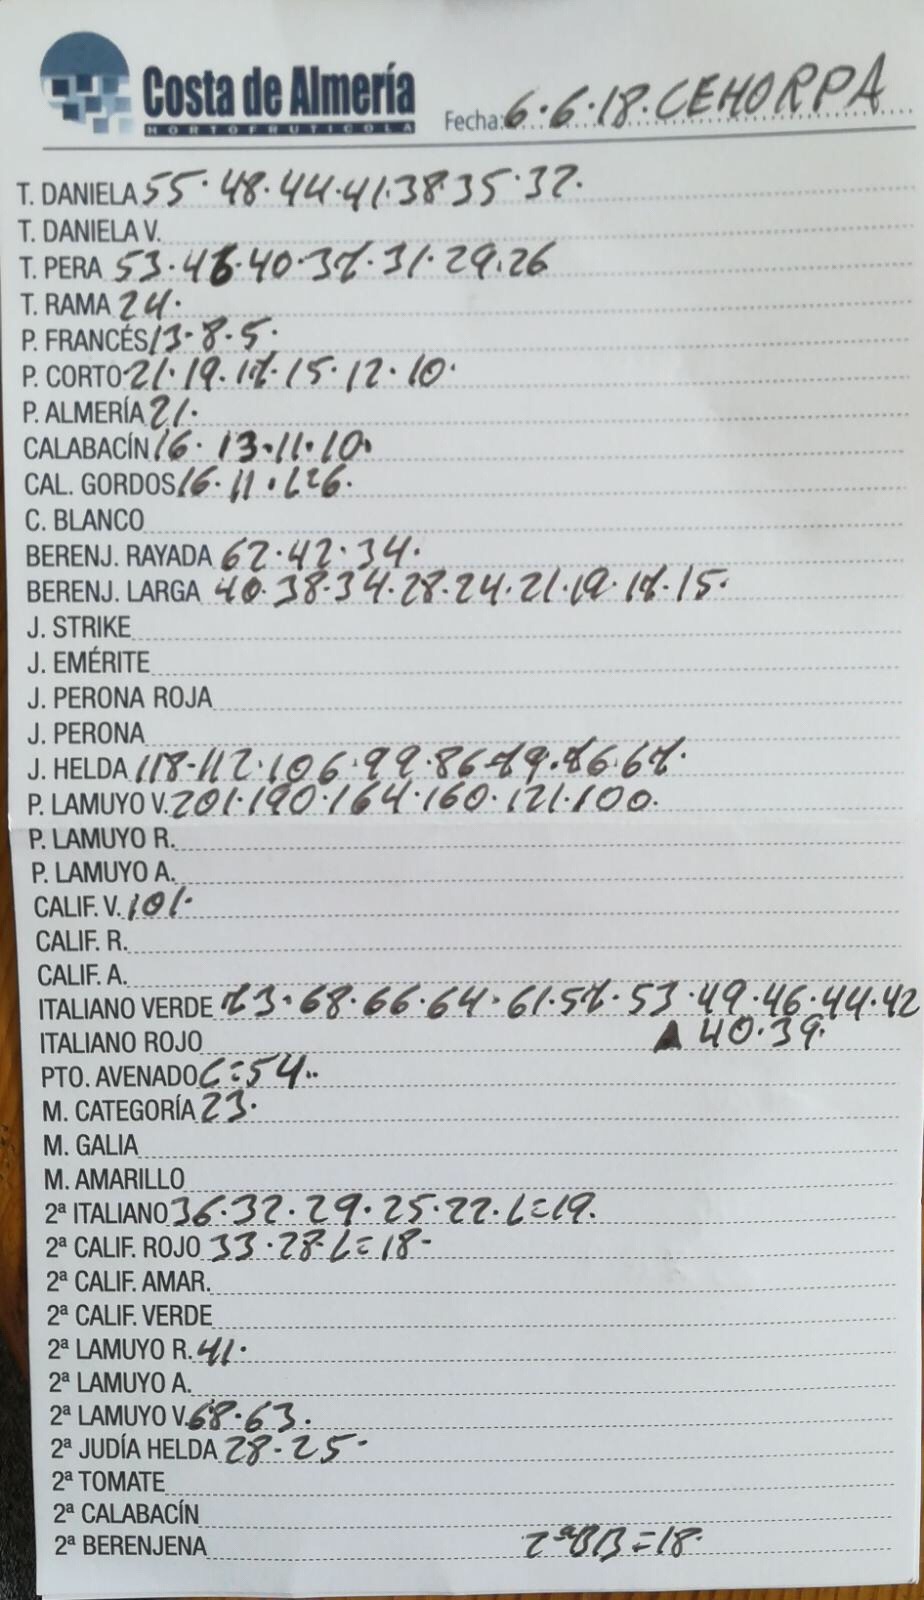 Costa de Almería
HORTOFRUTICOLA
Fecha: 6·6·18·CEHORPA
T. DANIELA 55·48·44·41·38·35·32·
T. DANIELA V.
T. PERA 53·46·40·37·31·29·26
T. RAMA 24·
P. FRANCÉS 13·8·5·
P. CORTO 21·19·17·15·12·10·
P. ALMERÍA 21·
CALABACÍN 16·13·11·10·
CAL. GORDOS 16·11·L=6·
C. BLANCO
BERENJ. RAYADA 62·42·34·
BERENJ. LARGA 40·38·34·28·24·21·19·17·15·
J. STRIKE
J. EMÉRITE
J. PERONA ROJA
J. PERONA
J. HELDA 118·112·106·99·86·79·76·67·
P. LAMUYO V. 201·190·164·160·121·100·
P. LAMUYO R.
P. LAMUYO A.
CALIF. V. 101·
CALIF. R.
CALIF. A.
ITALIANO VERDE 73·68·66·64·61·57·53·49·46·44·42
ITALIANO ROJO ▲ 40·39·
PTO. AVENADO C=54··
M. CATEGORÍA 23·
M. GALIA
M. AMARILLO
2ª ITALIANO 36·32·29·25·22·L=19·
2ª CALIF. ROJO 33·28·L=18-
2ª CALIF. AMAR.
2ª CALIF. VERDE
2ª LAMUYO R. 41·
2ª LAMUYO A.
2ª LAMUYO V. 68·63·
2ª JUDÍA HELDA 28-25-
2ª TOMATE
2ª CALABACÍN
2ª BERENJENA 2ªBB=18·